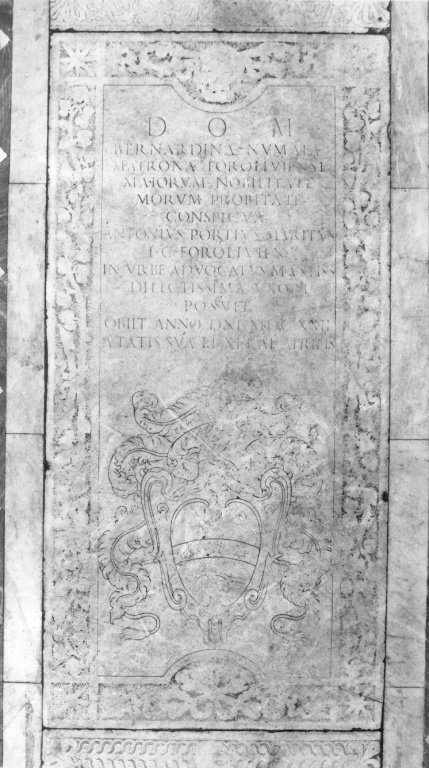 D O M
BERNARDINÆ NVMAIÆ
MATRONÆ FOROLIVIENSI
MAIORVM NOBILITATE
MORVM PROBITATE
CONSPICVÆ
ANTONIVS PORTIVS MARITVS
I C FOROLIVIEN
IN VRBE ADVOCATVS MÆSTISS
DILECTISSIMÆ VXORI
POSVIT
OBIIT ANNO DNI
ÆTATIS SVÆ